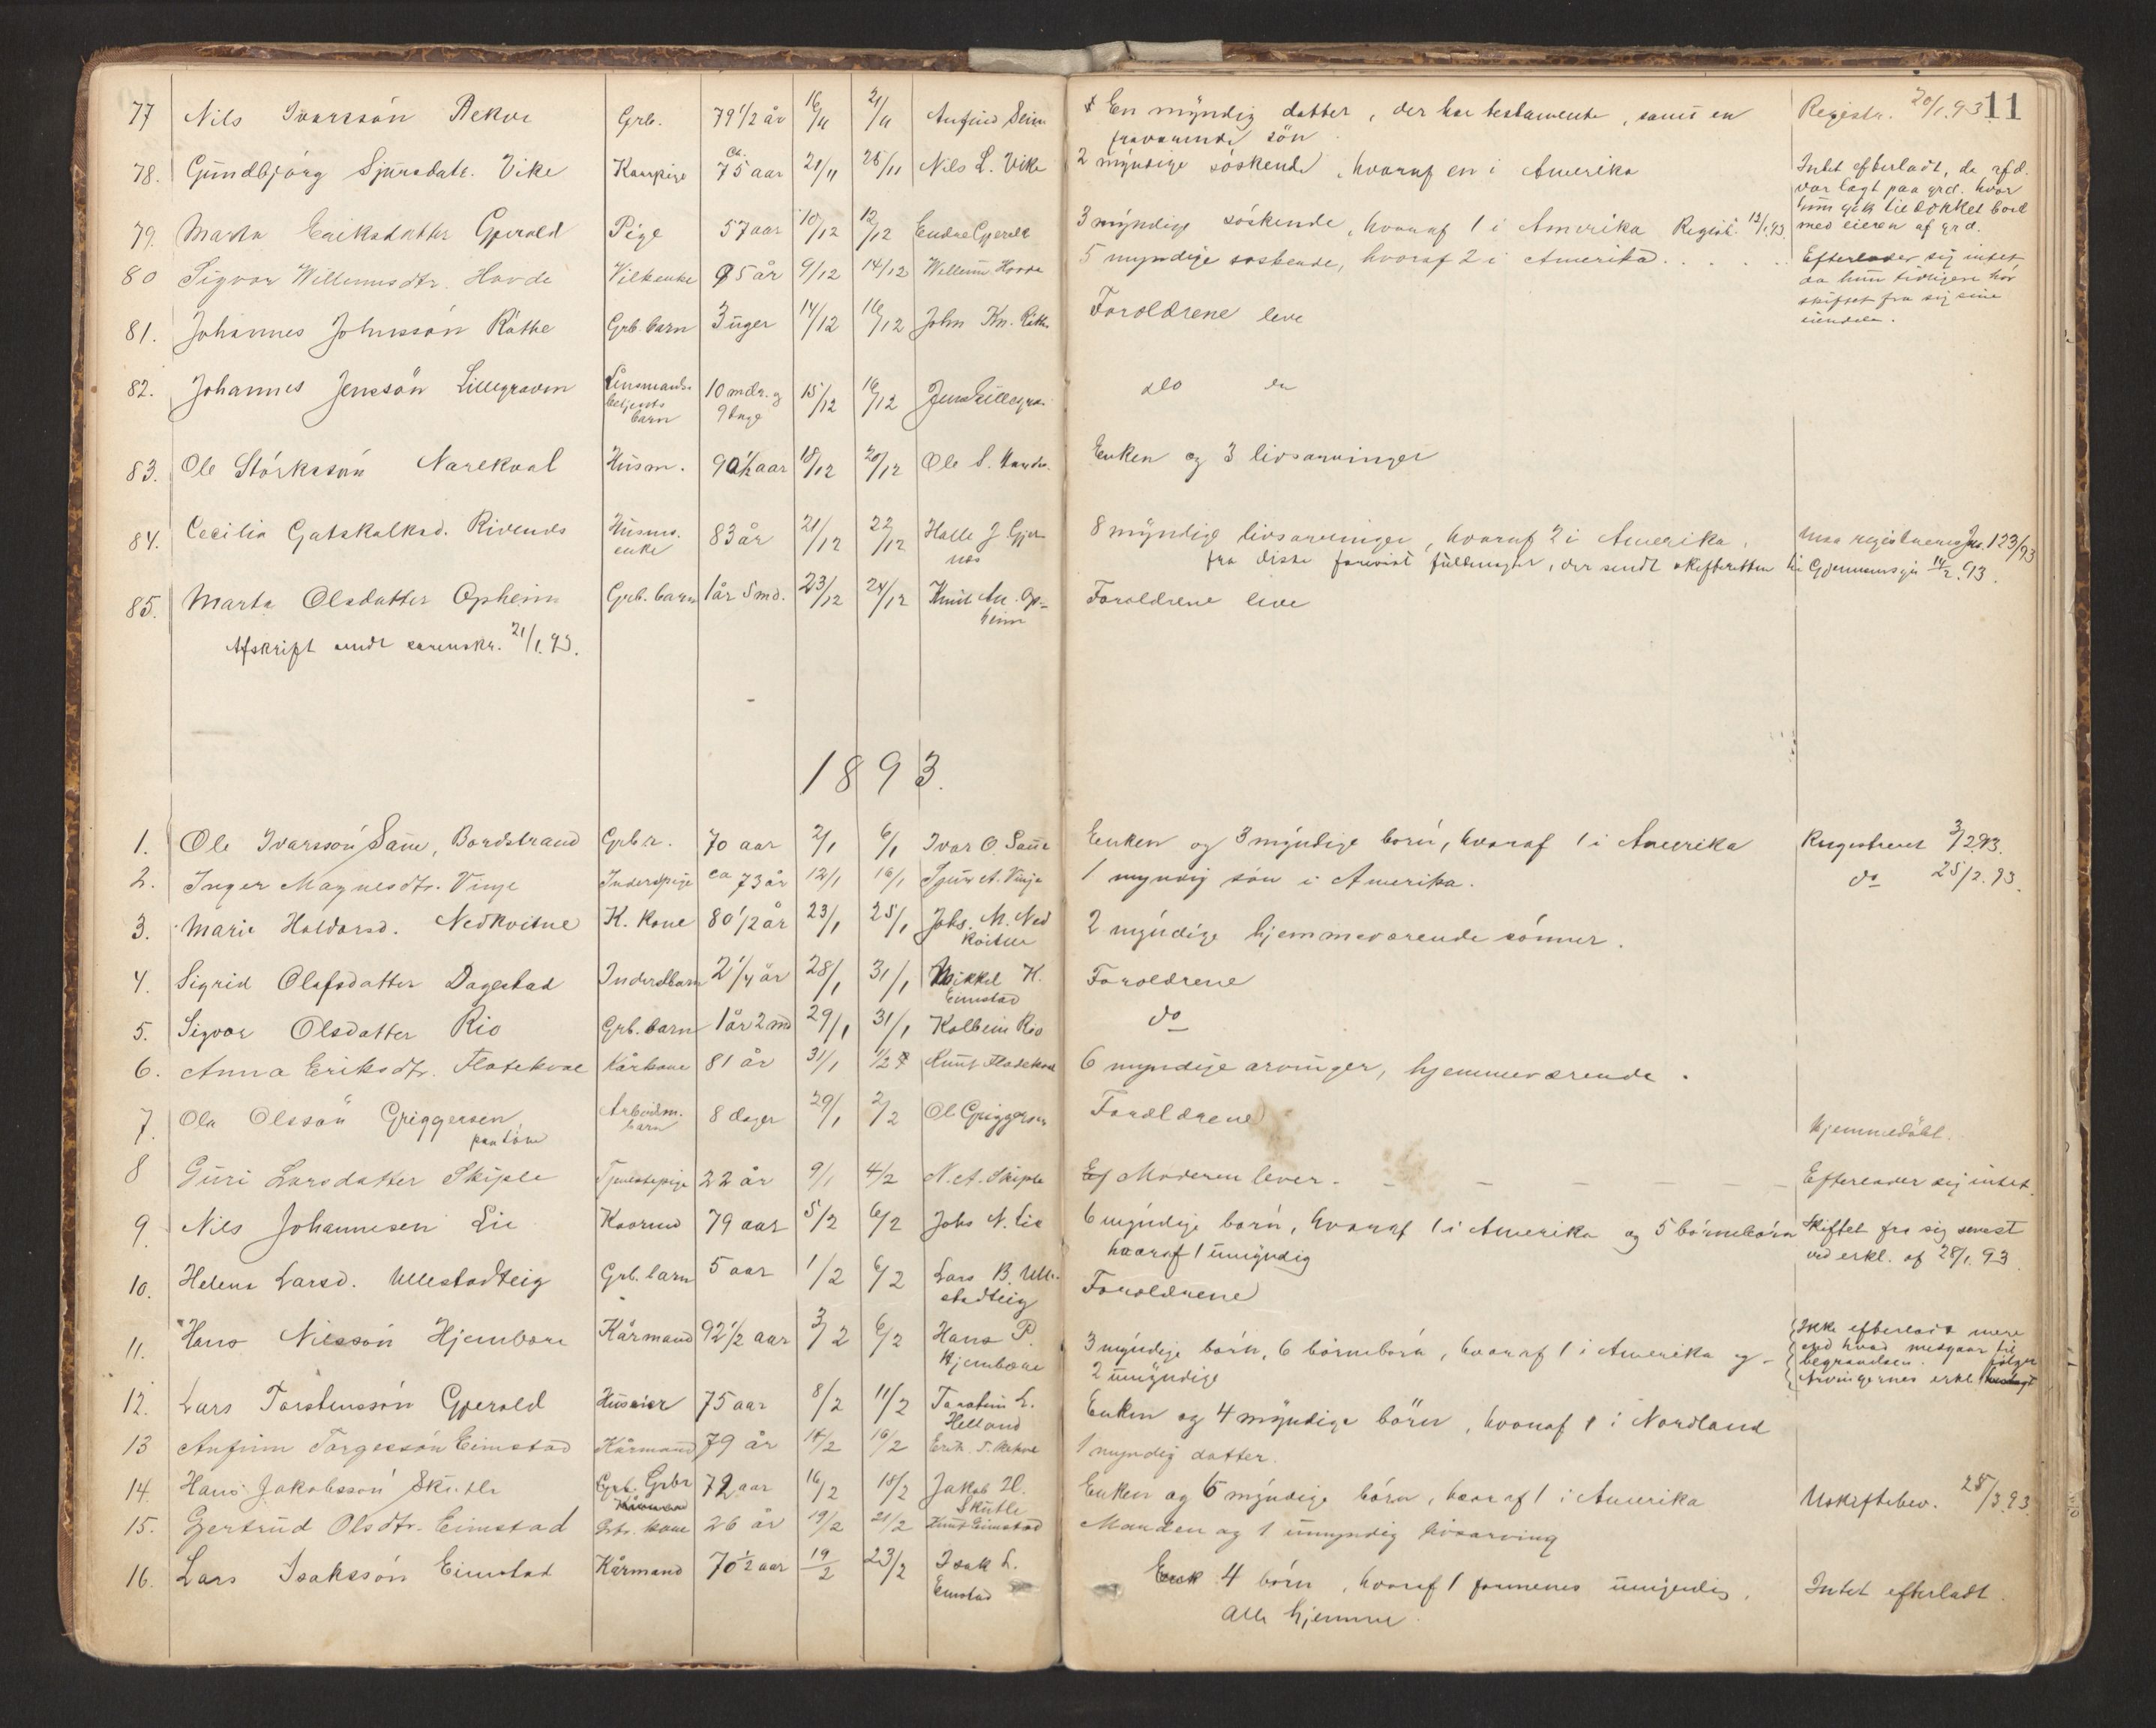 11
77 Nils Ivarssön Rekve Grb. 79 1/2 år 16/11 21/11 Anfind Seim En myndig datter, der har testamente, samt en Registr. 20/1.93
fraværende sön
78. Gundbjörg Sjursdatr. Vike Kaarpige ca. 75 aar 21/11 25/11 Nils L. Vike 2 myndige söskende, hvoraf en i Amerika Intet efterladt, da afd.
var lagt paa grd. hvor
hun gik til dækket bord
med eieren af grd.
79. Marta Eriksdatter Gjerald Pige 57 aar 10/12 12/12 Endre Gjerald 3 myndige söskende, hvoraf 1 i Amerika Registr. 13/1.93.
80 Sigvor Willumsdtr. Hovde Vilkenke 95 år 9/12 14/12 Willum Hovde 5 myndige söskende, hvoraf 2 i Amerika. . . . . Efterlader sig intet
da hun tidligere har
skiftet fra sig sine
eiendele.
81. Johannes Johnssön Röthe Grb. barn 3 uger 14/12 16/12 John Kn. Röthe Forældrene leve
82. Johannes Jenssön Lillegraven Lensmands-
betjents
barn 10 mdr. og
9 dage 15/12 16/12 Jens Lillegra. do do
83. Ole Störkssön Narekval Husm. 90 1/2 aar 18/12 20/12 Ole S. Enken og 3 livsarvinger
84. Cecilia Gatskalksd. Rivenes Husms.
enke 83 år 21/12 22/12 Halle J. Gjer-
nes 8 myndige livsarvinger, hvoraf 2 i Amerika. Jns. 123/93
fra disse forevist fuldmagt, der sendt skifteretten til 14/2.93.
85. Marta Olsdatter Opheim Grb. barn 1 år 5 md. 23/12 24/12 Knut An. Op-
heim Forældrene leve
Afskrift sendt sorenskr. 21/1.93.
1893.
1. Ole Ivarssön Saue, Bordstrand Grbr. 70 aar 2/1 6/1 Ivar O. Saue Enken og 3 myndige börn, hvoraf 1 i Amerika Registreret 3/2.93.
2. Inger Magnesdtr. Vinje Inderstpige ca 73 år 12/1 16/1 Sjur A. Vinje 1 myndig sön i Amerika. do 25/2.93.
3. Marie Haldorsd. Nedkvitne K. kone 80 1/2 år 23/1 25/1 Johs. M. Ned
kvitne 2 myndige hjemmeværende sönner.
4. Sigrid Olafsdatter Dagestad Inderstbarn 2 1/4 år 28/1 31/1 Mikkel K.
Eimstad Forældrene
5. Sigvor Olsdatter Rio Grb. barn 1 år 2 md 29/1 31/1 Kolbein Rio do
6. Anna Eriksdtr. Flatekval Kårkone 81 år 31/1 1/2 Knut Flatekval 6 myndige arvinger, hjemmeværende.
7. Ola Olssön Griggersen, Arbeidm.
barn 8 dager 29/1 2/2 Ol. Griggersen Forældrene Hjemmedöbt.
8 Guri Larsdatter Skiple Tjenestepige 22 år 9/1 4/2 N. A. Skiple Moderen lever. – – – – – Efterlader sig intet.
9. Nils Johannesen Lie Kaarmd 79 aar 5/2 6/2 Johs N. Lie 6 myndige börn, hvoraf 1 i Amerika og 5 börnebörn Skiftet fra sig senest
hvoraf 1 umyndig ved erkl. af 28/1.93.
10. Helena Larsd. Ullestadteig Grb. barn 5 aar 1/2 6/2 Lars B. Ulle-
stadteig Forældrene
11. Hans Nilssön Hjembore Kårmand 92 1/2 aar 3/2 6/2 Hans P.
Hjemböre 3 myndige börn, 6 börnebörn, hvoraf 1 i Amerika og
2 umyndige Ikke efterladt mere
end hvad medgaar til
begravelsen.
Arvingernes erkl. följer
12. Lars Torstenssön Gjerald Huseier 75 aar 8/2 11/2 Torstein L.
Helland Enken og 4 myndige börn, hvoraf 1 i Nordland
13 Anfinn Torgerssön Eimstad Kårmand 79 år 14/2 16/2 Erik T. Rekve 1 myndig datter.
14. Hans Jakobssön Skutle Grb. Grbr 72 aar 16/2 18/2 Jakob H.
Skutle Enken og 6 myndige börn, hvoraf 1 i Amerika Uskiftebev. 25/3.93.
15. Gertrud Olsdtr. Eimstad Grbr. kone 26 år 19/2 21/2 Knut Eimstad Manden og 1 umyndig livsarving
16. Lars Isakssön Eimstad Kårmand 70 1/2 aar 19/2 23/2 Isak L.
Eimstad 4 börn, hvoraf 1 umyndig,
Alle hjemme. Intet efterladt.